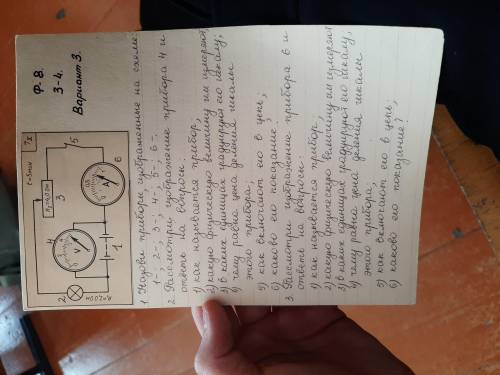 Ф. 8.
3-4.
Вариант 3.
1. Назови приборы, изображённые на схеме:
1-; 2-; 3-; 4-; 5-; 6-.
2. Рассмотри изображение прибора 4 и
ответь на вопросы:
1) как называется прибор;
2) какую физическую величину им измеряют;
3) в каких единицах градуируют его шкалу;
4) чему равна цена деления шкалы
этого прибора;
5) как включают его в цепь;
6) каково его показание?
3. Рассмотри изображение прибора 6 и
ответь на вопросы:
1) как называется прибор;
2) какую физическую величину им измеряют
3) в каких единицах градуируют его шкалу,
4) чему равна цена деления шкалы
этого прибора;
5) как включают его в цепь;
6) каково его показание?
5
6
A
3
4
V
1
2